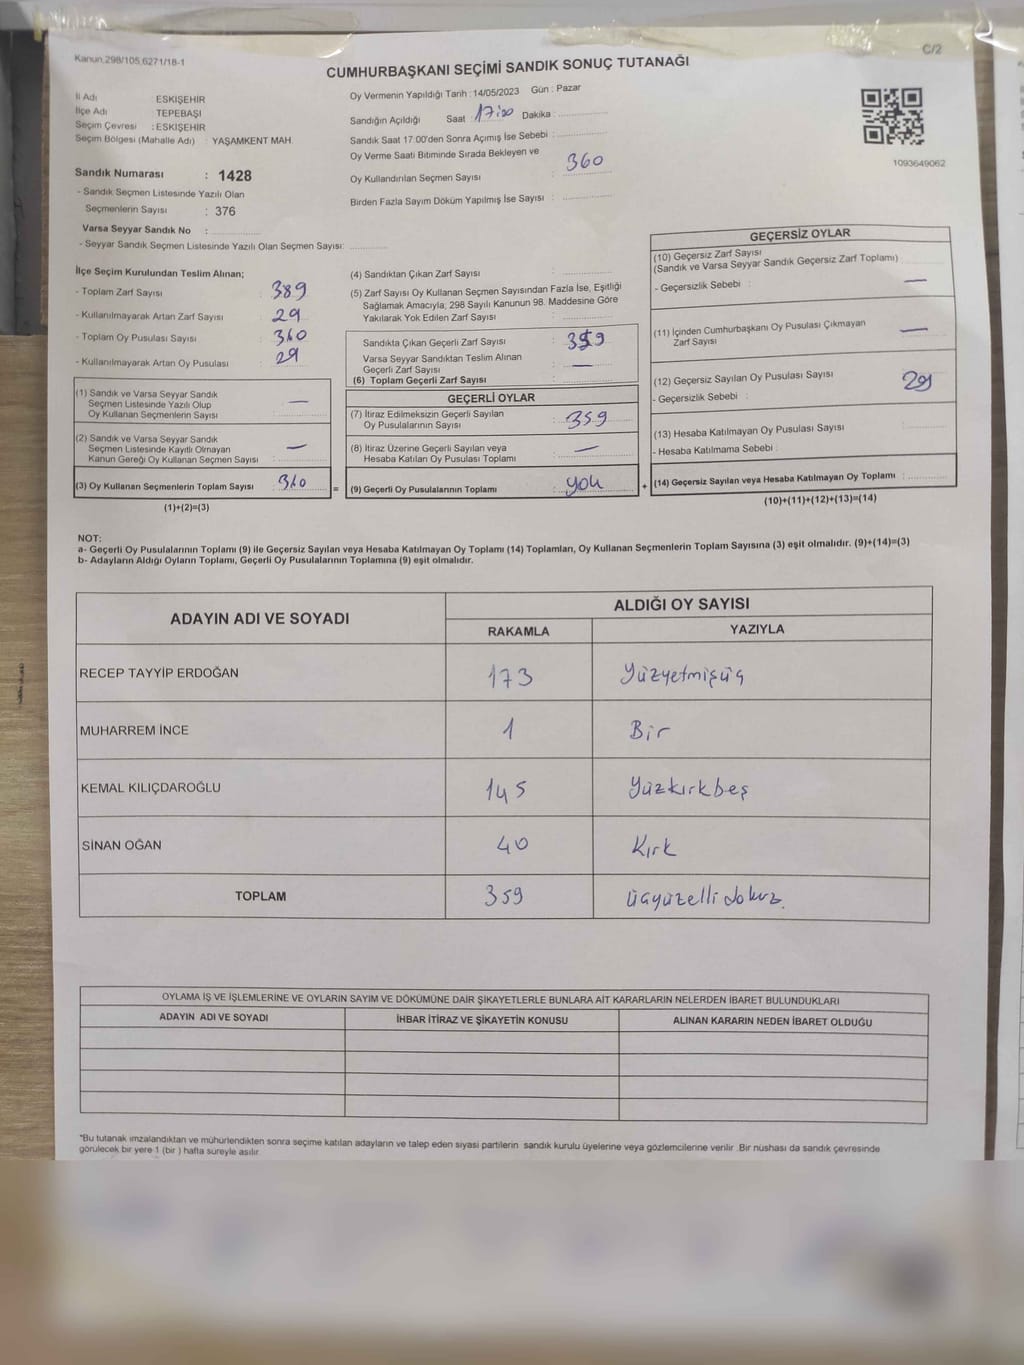 Kanun.298/105,6271/18-1
C/2
CUMHURBAŞKANI SEÇİMİ SANDIK SONUÇ TUTANAĞI
İl Adı ESKİŞEHİR
İlçe Adı TEPEBAŞI
Seçim Çevresi : ESKİŞEHİR
Seçim Bölgesi (Mahalle Adı) : YAŞAMKENT MAH.
Sandık Numarası : 1428
- Sandık Seçmen Listesinde Yazılı Olan
Seçmenlerin Sayısı : 376
Varsa Seyyar Sandık No :
- Seyyar Sandık Seçmen Listesinde Yazılı Olan Seçmen Sayısı:
Oy Vermenin Yapıldığı Tarih : 14/05/2023 Gün : Pazar
Sandığın Açıldığı Saat : 17:00 Dakika :
Sandık Saat 17:00'den Sonra Açımış İse Sebebi :
Oy Verme Saati Bitiminde Sırada Bekleyen ve
Oy Kullandırılan Seçmen Sayısı : 360
Birden Fazla Sayım Döküm Yapılmış İse Sayısı :
1093649062
İlçe Seçim Kurulundan Teslim Alınan;
- Toplam Zarf Sayısı : 389
- Kullanılmayarak Artan Zarf Sayısı : 29
- Toplam Oy Pusulası Sayısı : 360
- Kullanılmayarak Artan Oy Pusulası : 29
(1) Sandık ve Varsa Seyyar Sandık
Seçmen Listesinde Yazılı Olup
Oy Kullanan Seçmenlerin Sayısı : —
(2) Sandık ve Varsa Seyyar Sandık
Seçmen Listesinde Kayıtlı Olmayan
Kanun Gereği Oy Kullanan Seçmen Sayısı : —
(3) Oy Kullanan Seçmenlerin Toplam Sayısı : 360
(1)+(2)=(3)
=
(4) Sandıktan Çıkan Zarf Sayısı :
(5) Zarf Sayısı Oy Kullanan Seçmen Sayısından Fazla İse, Eşitliği
Sağlamak Amacıyla; 298 Sayılı Kanunun 98. Maddesine Göre
Yakılarak Yok Edilen Zarf Sayısı :
Sandıkta Çıkan Geçerli Zarf Sayısı : 359
Varsa Seyyar Sandıktan Teslim Alınan
Geçerli Zarf Sayısı : —
(6) Toplam Geçerli Zarf Sayısı :
GEÇERLİ OYLAR
(7) İtiraz Edilmeksizin Geçerli Sayılan
Oy Pusulalarının Sayısı : 359
(8) İtiraz Üzerine Geçerli Sayılan veya
Hesaba Katılan Oy Pusulası Toplamı : —
(9) Geçerli Oy Pusulalarının Toplamı : yok
+
GEÇERSİZ OYLAR
(10) Geçersiz Zarf Sayısı
(Sandık ve Varsa Seyyar Sandık Geçersiz Zarf Toplamı)
- Geçersizlik Sebebi : —
(11) İçinden Cumhurbaşkanı Oy Pusulası Çıkmayan
Zarf Sayısı —
(12) Geçersiz Sayılan Oy Pusulası Sayısı : 29
- Geçersizlik Sebebi :
(13) Hesaba Katılmayan Oy Pusulası Sayısı
- Hesaba Katılmama Sebebi :
(14) Geçersiz Sayılan veya Hesaba Katılmayan Oy Toplamı :
(10)+(11)+(12)+(13)=(14)
NOT:
a- Geçerli Oy Pusulalarının Toplamı (9) ile Geçersiz Sayılan veya Hesaba Katılmayan Oy Toplamı (14) Toplamları, Oy Kullanan Seçmenlerin Toplam Sayısına (3) eşit olmalıdır. (9)+(14)=(3)
b- Adayların Aldığı Oyların Toplamı, Geçerli Oy Pusulalarının Toplamına (9) eşit olmalıdır.
ADAYIN ADI VE SOYADI ALDIĞI OY SAYISI
RAKAMLA YAZIYLA
RECEP TAYYİP ERDOĞAN 173 Yüzyetmişüç
MUHARREM İNCE 1 Bir
KEMAL KILIÇDAROĞLU 145 Yüzkırkbeş
SİNAN OĞAN 40 Kırk
TOPLAM 359 üçyüzellidokuz.
OYLAMA İŞ VE İŞLEMLERİNE VE OYLARIN SAYIM VE DÖKÜMÜNE DAİR ŞİKAYETLERLE BUNLARA AİT KARARLARIN NELERDEN İBARET BULUNDUKLARI
ADAYIN ADI VE SOYADI İHBAR İTİRAZ VE ŞİKAYETİN KONUSU ALINAN KARARIN NEDEN İBARET OLDUĞU
*Bu tutanak imzalandıktan ve mühürlendikten sonra seçime katılan adayların ve talep eden siyasi partilerin sandık kurulu üyelerine veya gözlemcilerine verilir. Bir nüshası da sandık çevresinde
görülecek bir yere 1 (bir) hafta süreyle asılır.